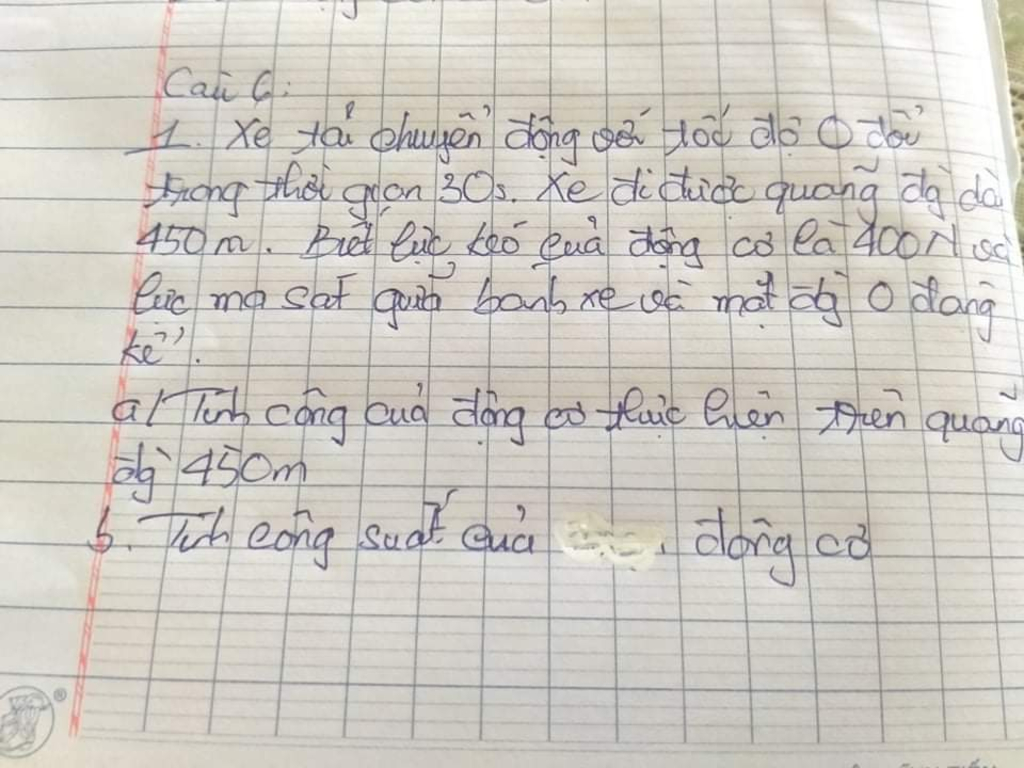 Câu 6:
1. Xe tải chuyển động với tốc độ 0 đổi
trong thời gian 30s. Xe đi được quãng đg dài
450m. Biết lực kéo của động cơ là 400N và
lực ma sát giữa bánh xe và mặt đg 0 đáng
kể.
a/ Tính công của động cơ thực hiện trên quãng
đg 450m
b. Tính công suất của động cơ